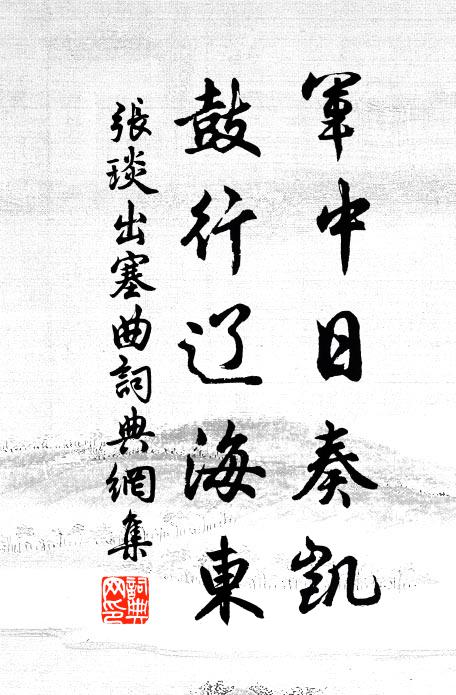 軍中日奏凱
鼓行辽海東
張琰出塞曲詞典網集
詞典
网印